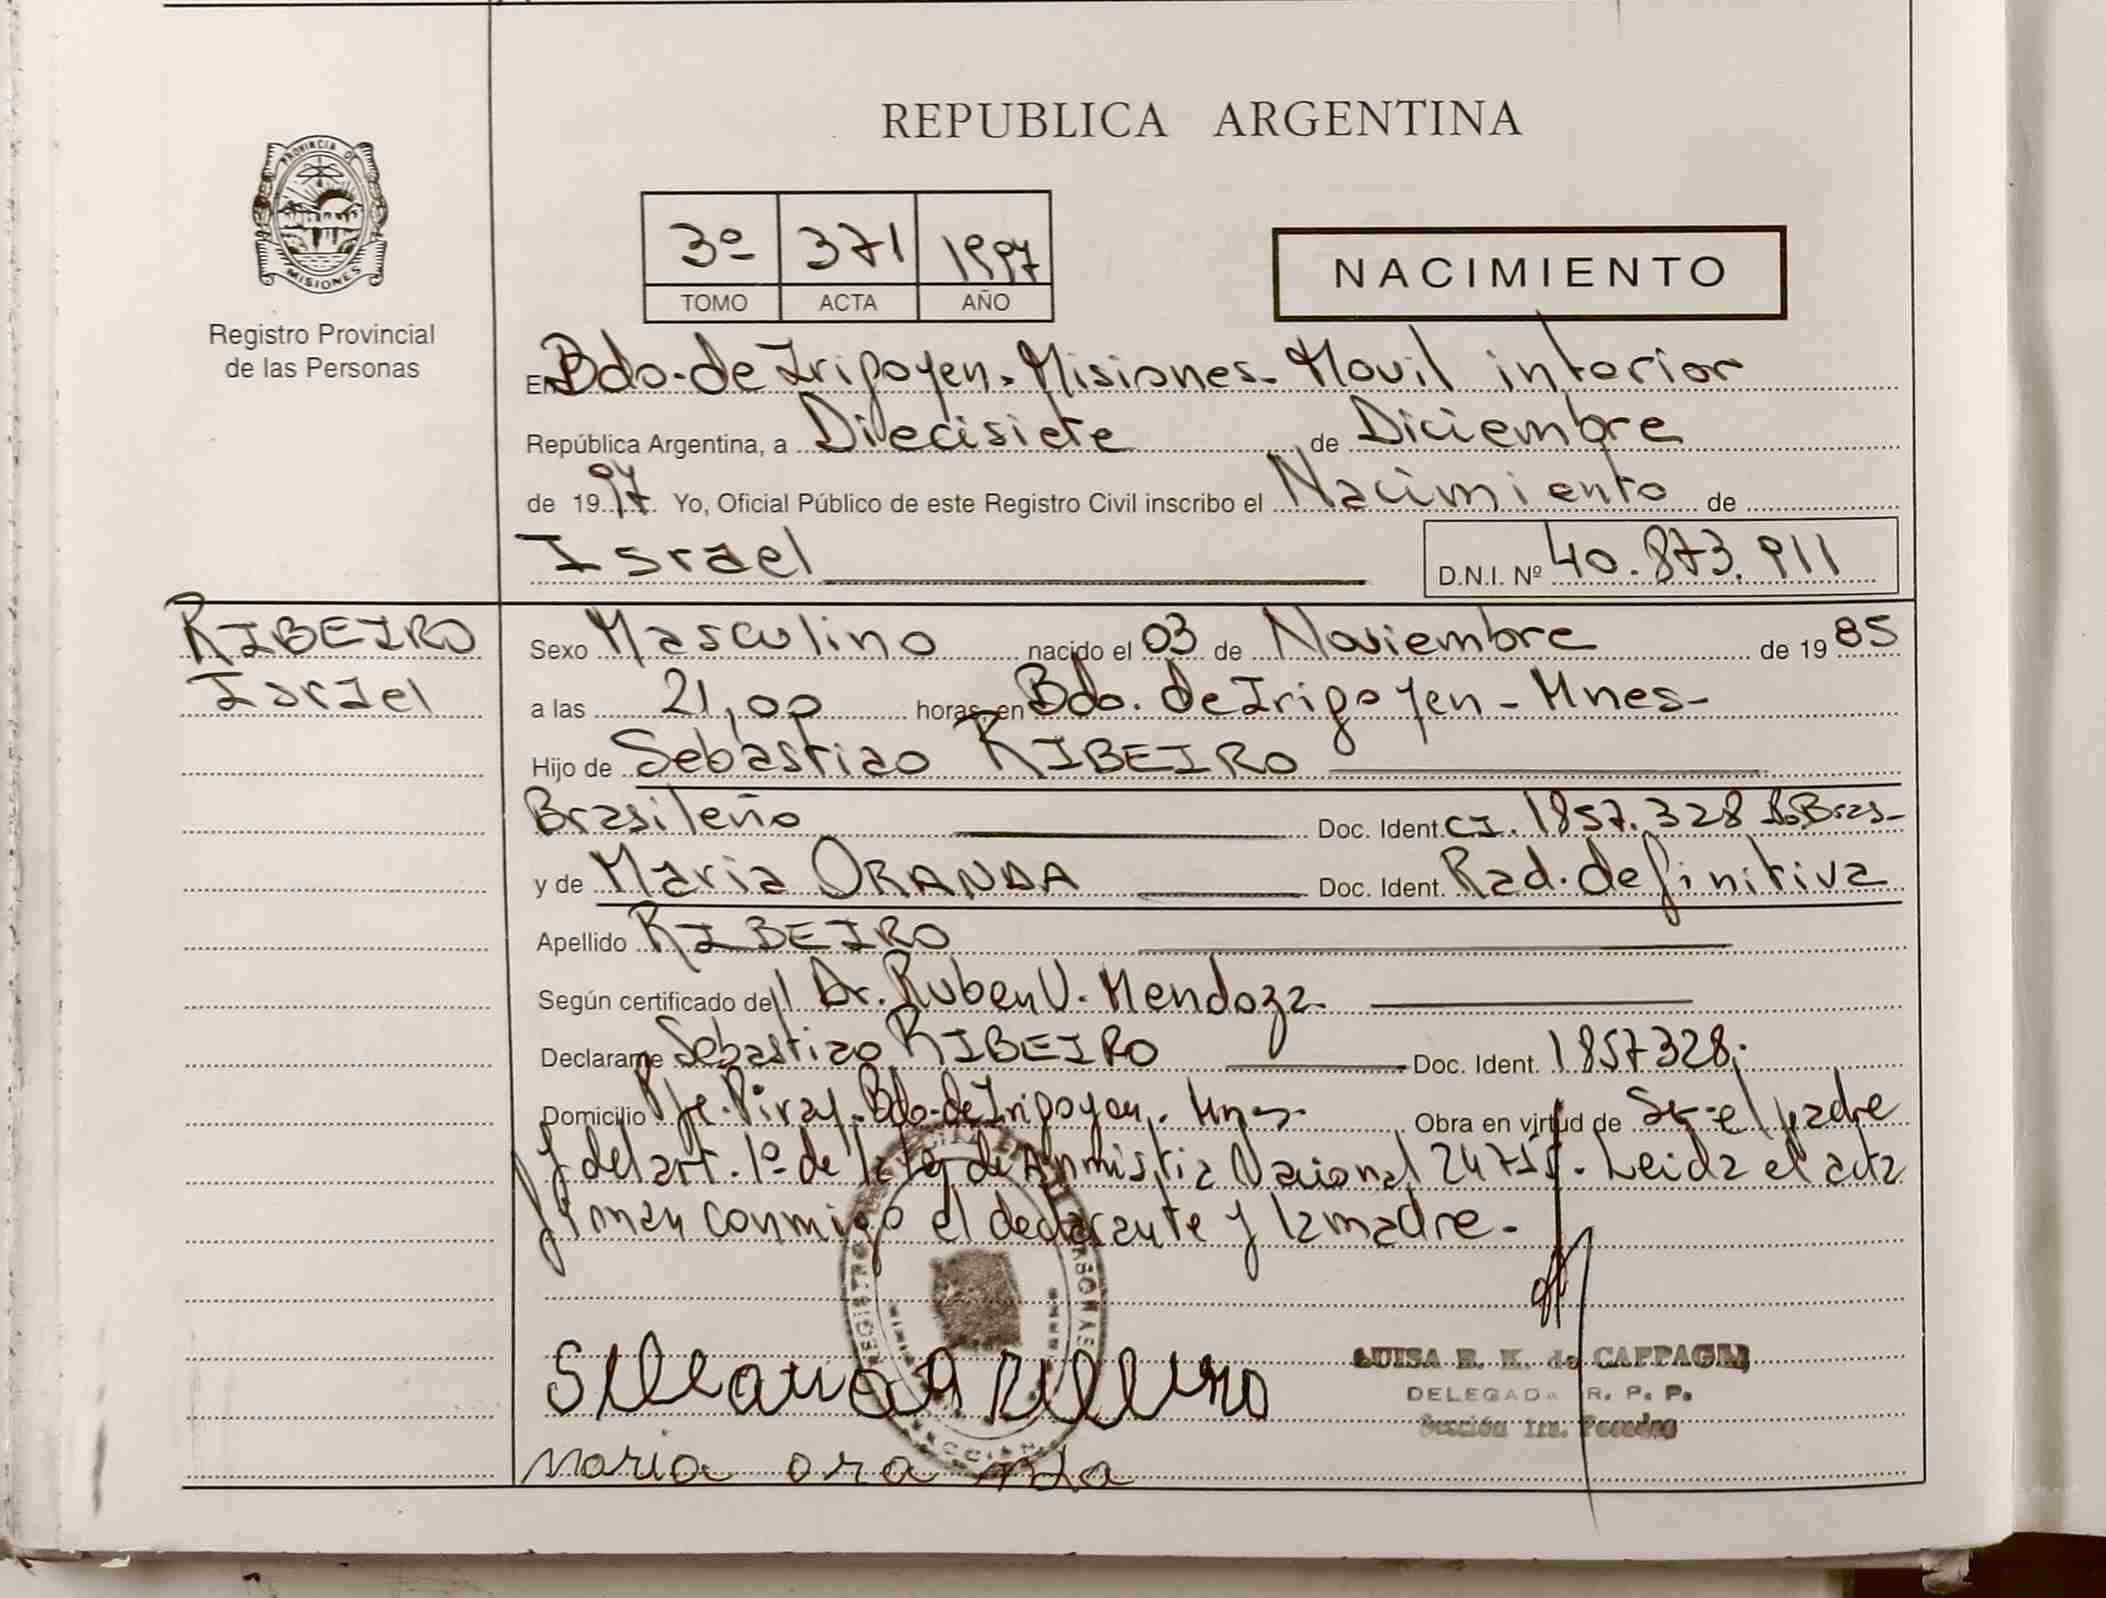 REPUBLICA ARGENTINA
PROVINCIA DE
MISIONES
Registro Provincial
de las Personas
3º 371 1997
TOMO ACTA AÑO
NACIMIENTO
En Bdo. de Irigoyen. Misiones. Movil interior
República Argentina, a Diecisiete de Diciembre
de 1997 Yo, Oficial Público de este Registro Civil inscribo el Nacimiento de
Israel D.N.I. Nº 40.873.911
RIBEIRO
Israel
Sexo Masculino nacido el 03 de Noviembre de 1985
a las 21,00 horas, en Bdo. de Irigoyen - Mnes-
Hijo de Sebastiao RIBEIRO
Brasileño Doc. Ident. CI. 1857.328 Bras-
y de Maria ORANDA Doc. Ident. Rad. definitiva
Apellido RIBEIRO
Según certificado del Dr. Ruben V. Mendoza.
Declarame Sebastiao RIBEIRO Doc. Ident. 1857328.
Domicilio Pje. Piray. Bdo. de Irigoyen. Mnes. Obra en virtud de Ser el padre
y del art. 1º de la Ley de Anmistia Nacional 24755. Leida el acta
firman conmigo el declarante y la madre.
LUISA E. K. de CAPPAGLI
DELEGADA R. P. P.
Sección 1ra. Posadas
maria oranda